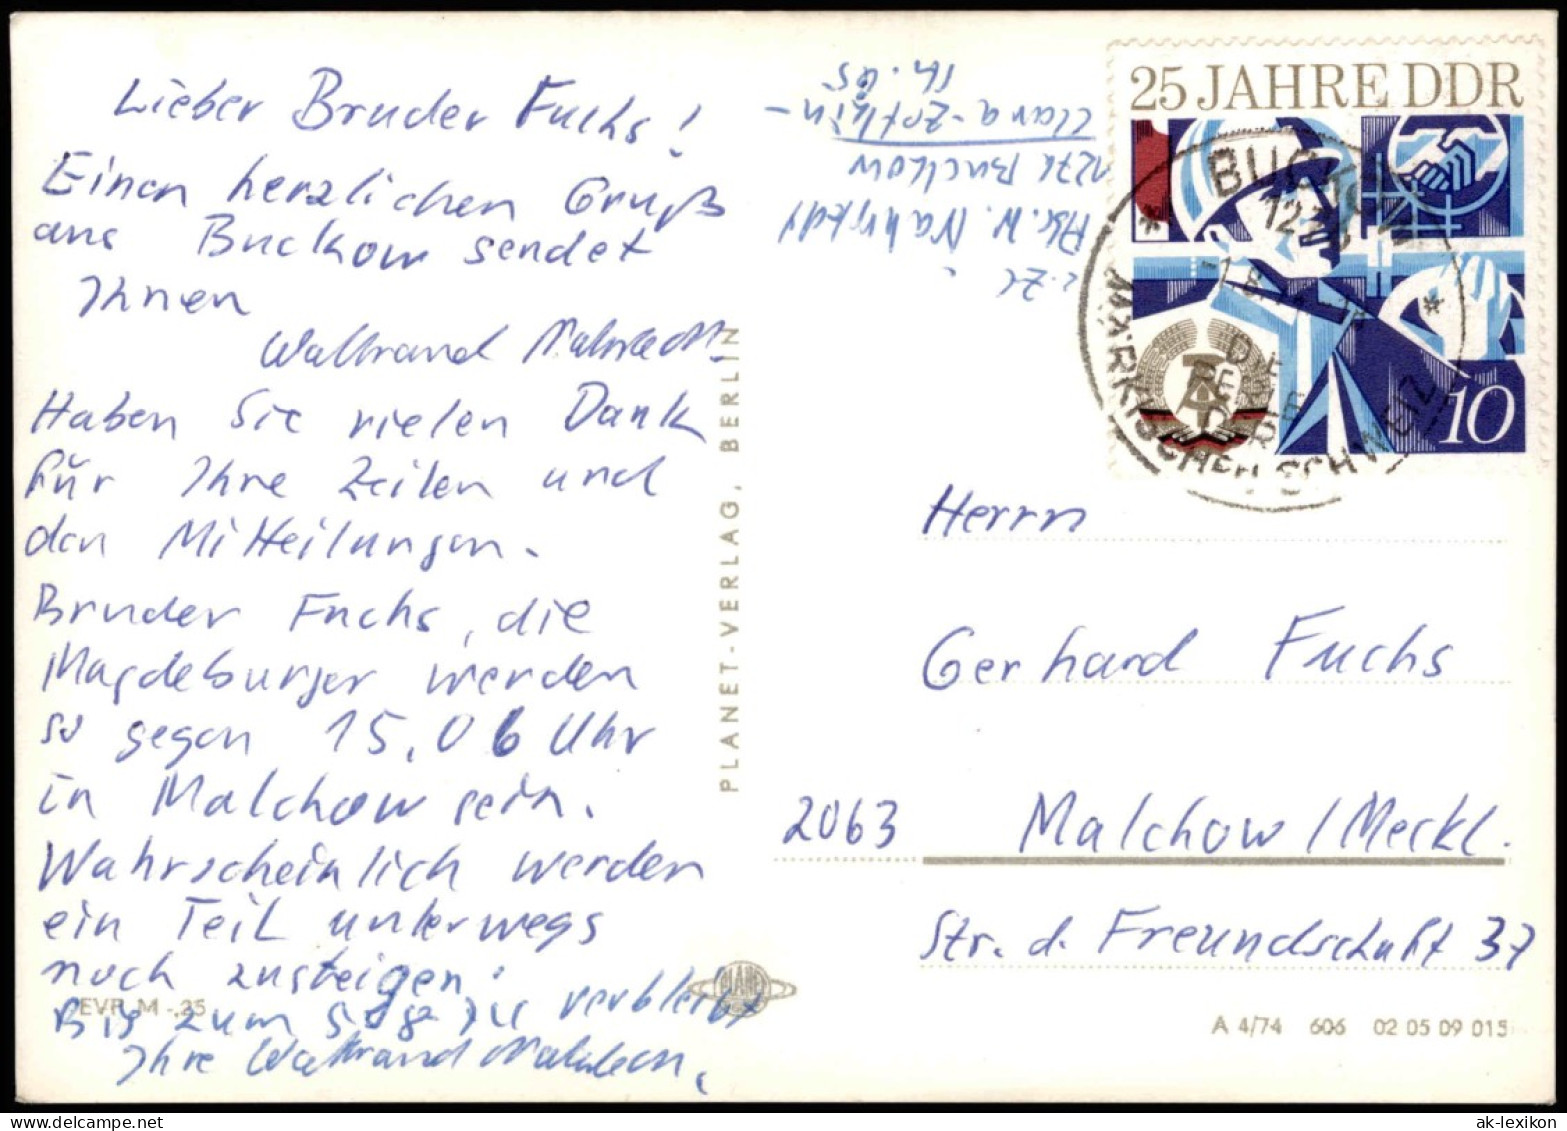 Lieber Bruder Fuchs!
Einen herzlichen Gruß
aus Buckow sendet
Ihnen
Waltraud
Haben Sie vielen Dank
für Ihre Zeilen und
den Mitteilungen.
Bruder Fuchs, die
Magdeburger werden
so gegen 15.06 Uhr
in Malchow sein.
Wahrscheinlich werden
ein Teil unterwegs
noch zusteigen.
Bis zum verbleibt
Ihre Waltraud
EVP M -,25
PLANET-VERLAG, BERLIN
PLANET
z.Zt.
W.
1276 Buckow
Clara-Zetkin-
25 JAHRE DDR
10
BUCKOW
MÄRKISCHEN SCHWEIZ
DIE
PERLE
DER
Herrn
Gerhard Fuchs
2063 Malchow/Meckl.
Str. d. Freundschaft 37
A 4/74 606 02 05 09 015
ak-lexikon